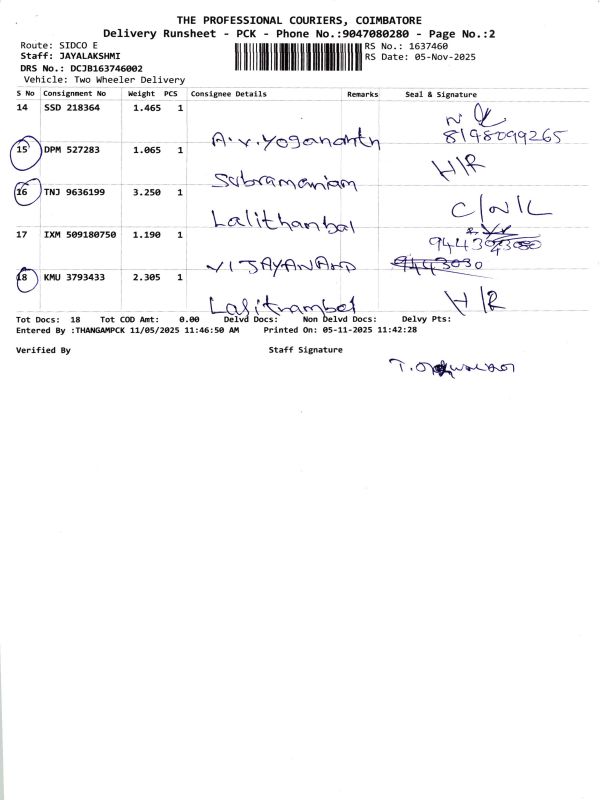 THE PROFESSIONAL COURIERS, COIMBATORE
Delivery Runsheet - PCK - Phone No.:9047080280 - Page No.:2
Route: SIDCO E RS No.: 1637460
Staff: JAYALAKSHMI RS Date: 05-Nov-2025
DRS No.: DCJB163746002
Vehicle: Two Wheeler Delivery
S No Consignment No Weight PCS Consignee Details Remarks Seal & Signature
14 SSD 218364 1.465 1
A.V.Yogananth 8198099265
15 DPM 527283 1.065 1
Subramaniam H/R
16 TNJ 9636199 3.250 1
Lalithambal C/N/L
17 IXM 509180750 1.190 1
VIJAYANAND
18 KMU 3793433 2.305 1
Lalithambal H/R
Tot Docs: 18 Tot COD Amt: 0.00 Delvd Docs: Non Delvd Docs: Delvy Pts:
Entered By :THANGAMPCK 11/05/2025 11:46:50 AM Printed On: 05-11-2025 11:42:28
Verified By Staff Signature